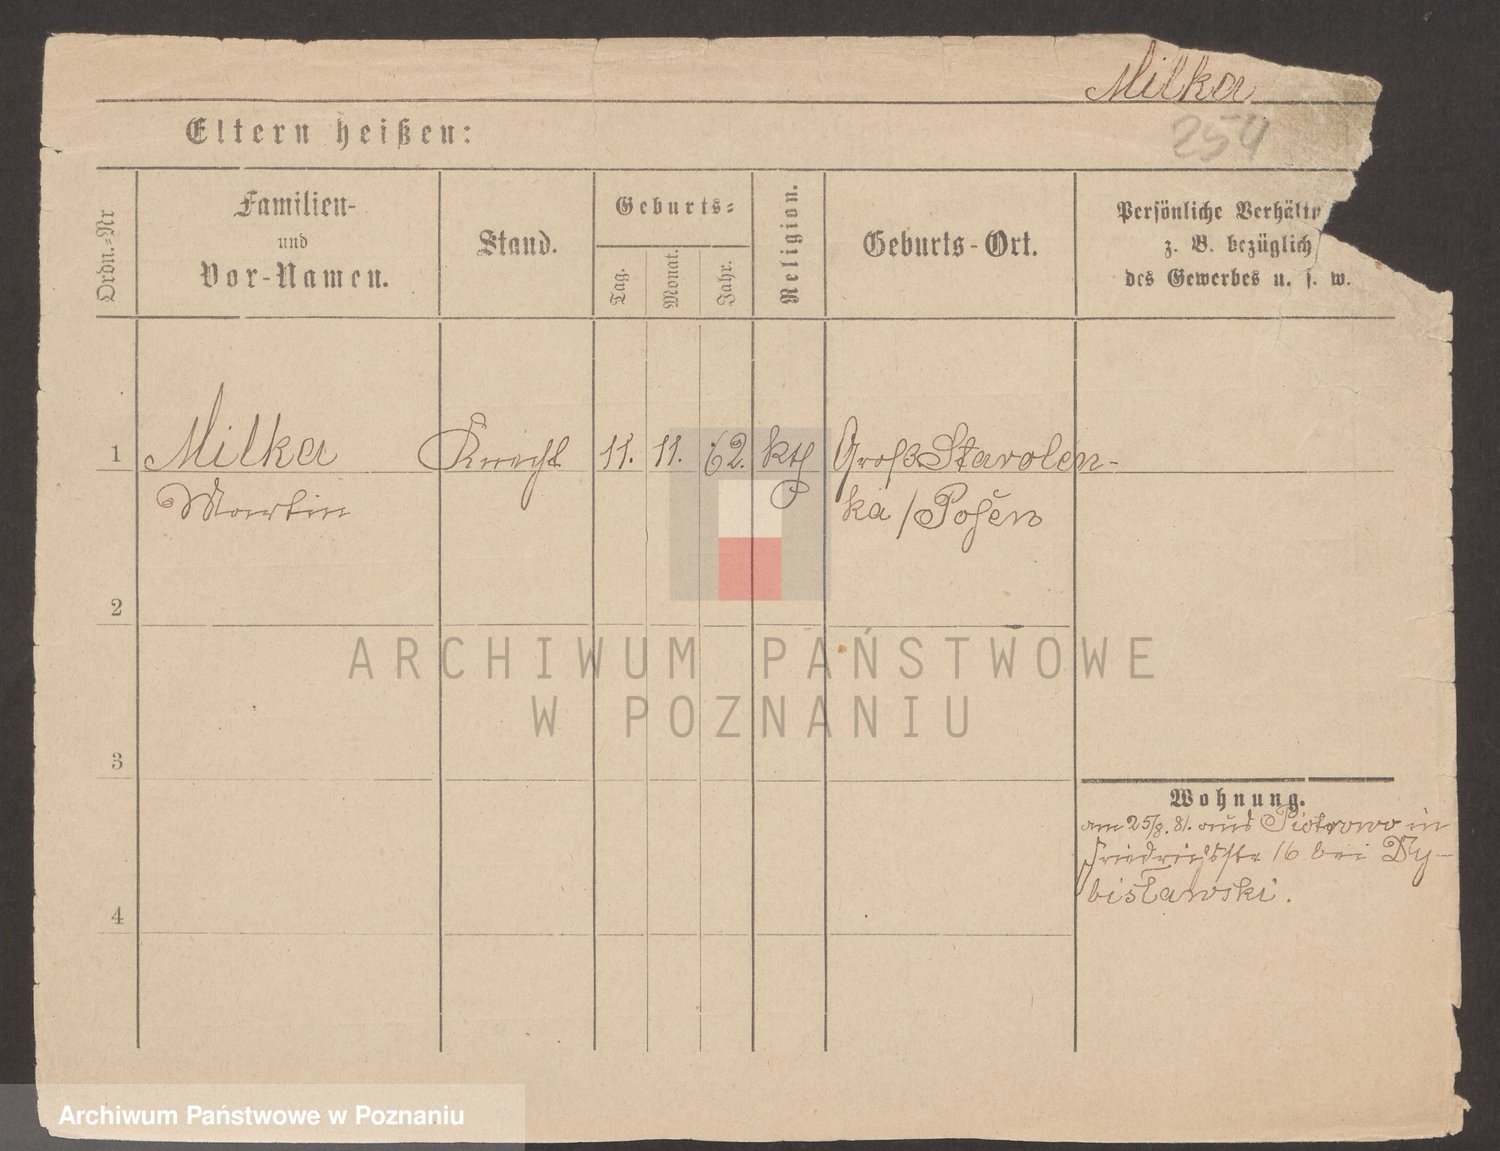 Milka
254
Eltern heißen:
Ordn.-Nr
Familien-
und
Vor-Namen.
Stand.
Geburts-
Tag.
Monat.
Jahr.
Religion.
Geburts-Ort.
Persönliche Verhält
z. B. bezüglich
des Gewerbes u. s. w.
1 Milka Knecht 11. 11. 62. kth Groß Starolen-
Martin ka / Posen
2
3
4
Wohnung.
am 25/8. 81. aus Piotrowo in
Friedrichsstr 16 bei Dy-
bisławski.
ARCHIWUM PAŃSTWOWE
W POZNANIU
Archiwum Państwowe w Poznaniu